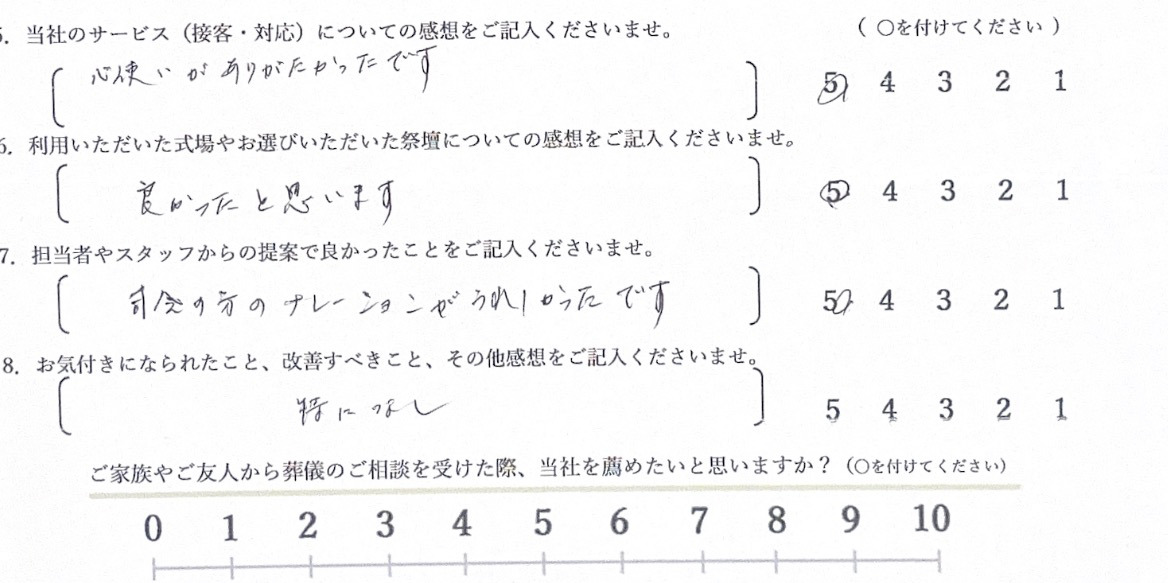 5. 当社のサービス（接客・対応）についての感想をご記入くださいませ。 （ ○を付けてください ）
心使いがありがたかったです 5 4 3 2 1
6. 利用いただいた式場やお選びいただいた祭壇についての感想をご記入くださいませ。
良かったと思います 5 4 3 2 1
7. 担当者やスタッフからの提案で良かったことをご記入くださいませ。
司会の方のナレーションがうれしかったです 5 4 3 2 1
8. お気付きになられたこと、改善すべきこと、その他感想をご記入くださいませ。
特になし 5 4 3 2 1
ご家族やご友人から葬儀のご相談を受けた際、当社を薦めたいと思いますか？（○を付けてください）
0 1 2 3 4 5 6 7 8 9 10